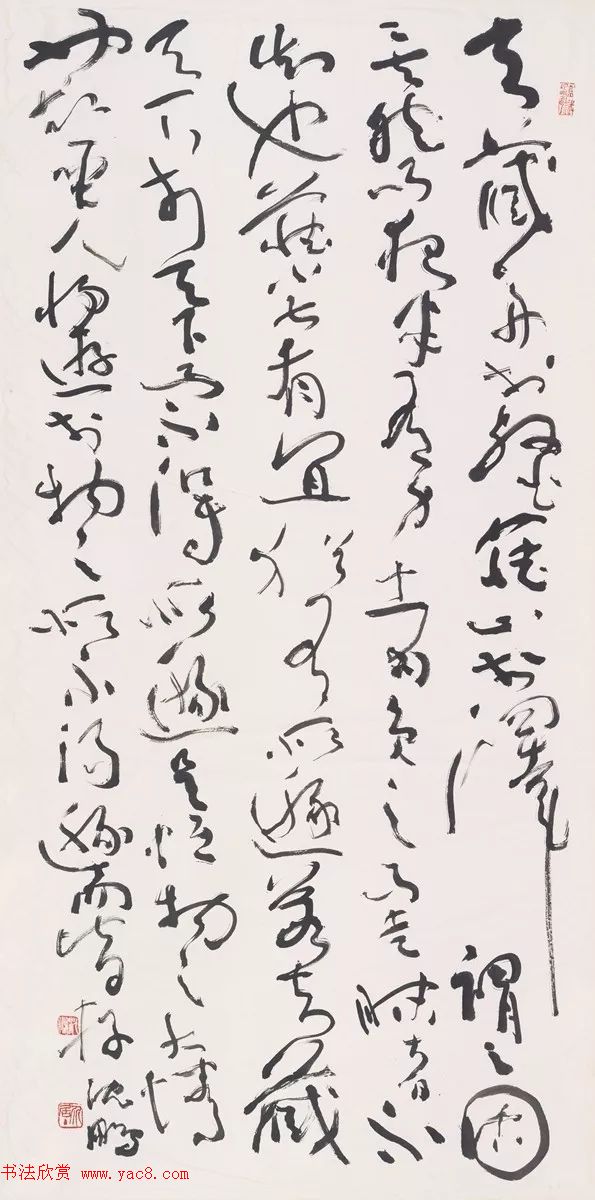 夫藏舟於壑藏山於澤謂之固
矣然而夜半有力者負之而走昧者不
知也藏小大有宜猶有所遯若夫藏
天下於天下而不得所遯是恆物之大情
也故聖人將遊於物之所不得遯而皆存
沈鵬
书法欣赏 www.yac8.com